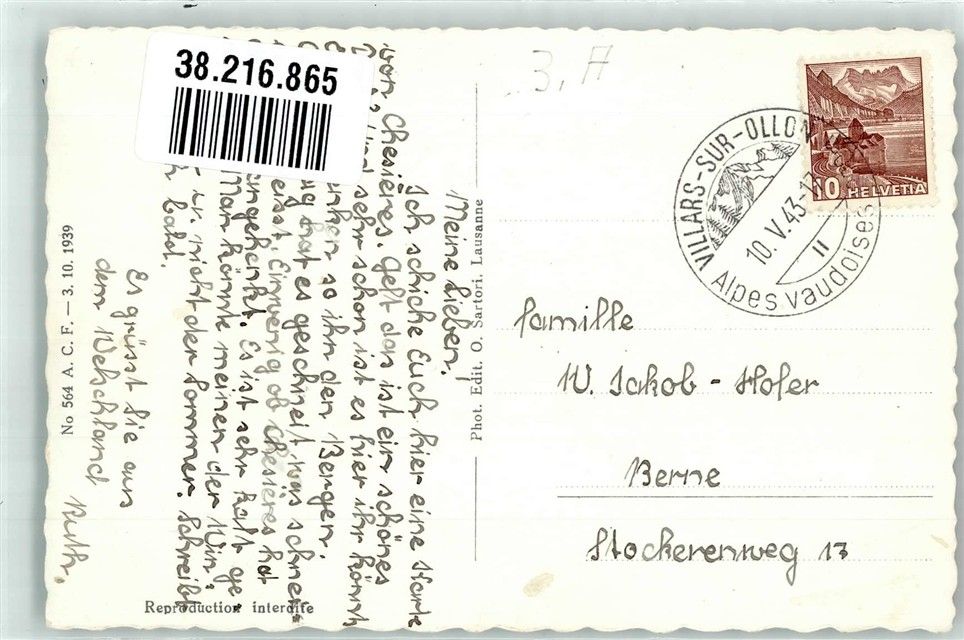 38.216.865
3. A
VILLARS-SUR-OLLON
10.V.43
II
Alpes vaudoises
10 HELVETIA
famille
W. Jakob - Hofer
Berne
Stockerenweg 13
Phot. Edit. O. Sartori. Lausanne
Meine Lieben!
Ich schicke Euch hier eine Karte
von Chesières. Gelt das ist ein schönes
sehr schön ist es hier ihr könnt
so ihn den Bergen.
hat es geschneit was schnei
eisst. Einwenig ob Chesières hat
angehenkt. Es ist sehr kalt ge
Man könnte meinen der Win
nicht der Sommer. Schreibt
bald.
Es grüsst Sie aus
dem Welschland
Ruth.
No 564 A. C. F. — 3. 10. 1939
Reproduction interdite